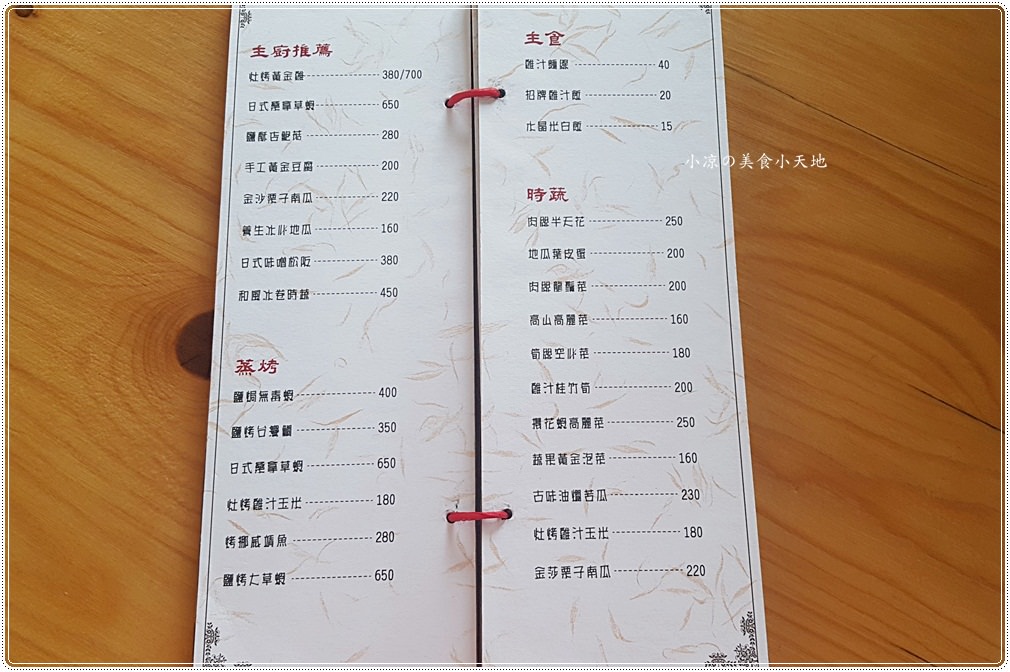 主廚推薦
灶烤黃金雞 380/700
日式蘿拿草蝦 650
鹽酥杏鮑菇 280
手工黃金豆腐 200
金沙栗子南瓜 220
養生冰心地瓜 160
日式味噌松阪 380
和風冰卷時蔬 450
蒸烤
鹽焗無毒蝦 400
鹽烤台灣鯛 350
日式蘿拿草蝦 650
灶烤雞汁玉米 180
烤挪威鯖魚 280
鹽烤大草蝦 650
主食
雞汁麵線 40
招牌雞汁飯 20
水晶米白飯 15
小凉の美食小天地
時蔬
肉絲半天花 250
地瓜葉皮蛋 200
肉絲龍鬚菜 200
高山高麗菜 160
筍絲空心菜 180
雞汁桂竹筍 200
櫻花蝦高麗菜 250
蔬果黃金泡菜 160
古味油燜苦瓜 230
灶烤雞汁玉米 180
金莎栗子南瓜 220